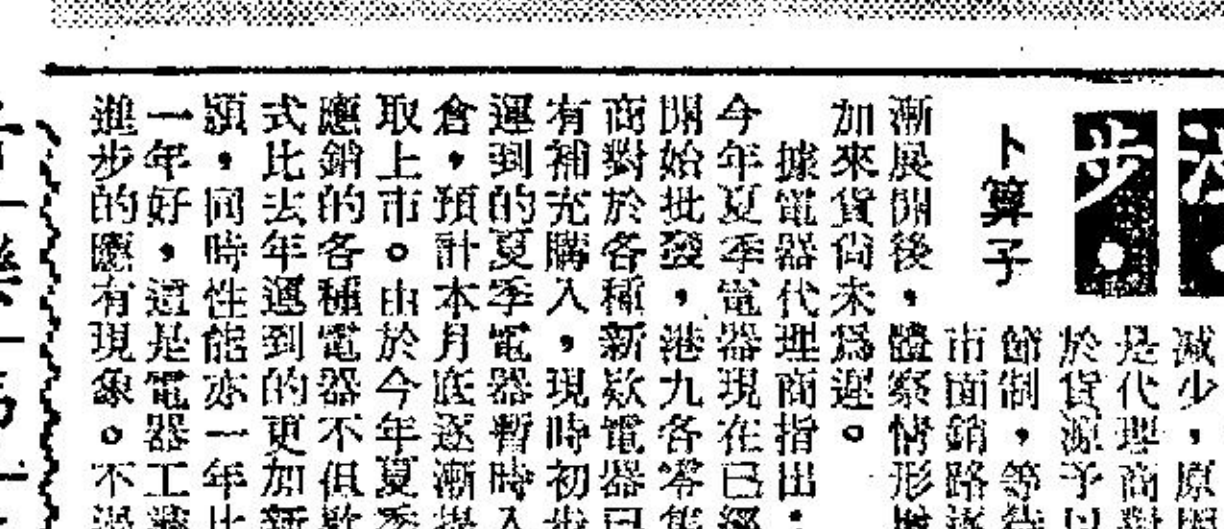 步。
卜算子
減少，原
是代理商對
於貨源予以
節制，等待
市面銷路逐
漸展開後，體察情形
加來貨尚未為遲。
據電器代理商指出：
今年夏季電器現在已經
開始批發，港九各零售
商對於各種新欵電器已
有補充購入，現時初步
運到的夏季電器暫時入
倉，預計本月底逐漸提
取上市。由於今年夏季
應銷的各種電器不但欵
式比去年運到的更加新
頴，同時性能亦一年比
一年好，這是電器工業
進步的應有現象。不過